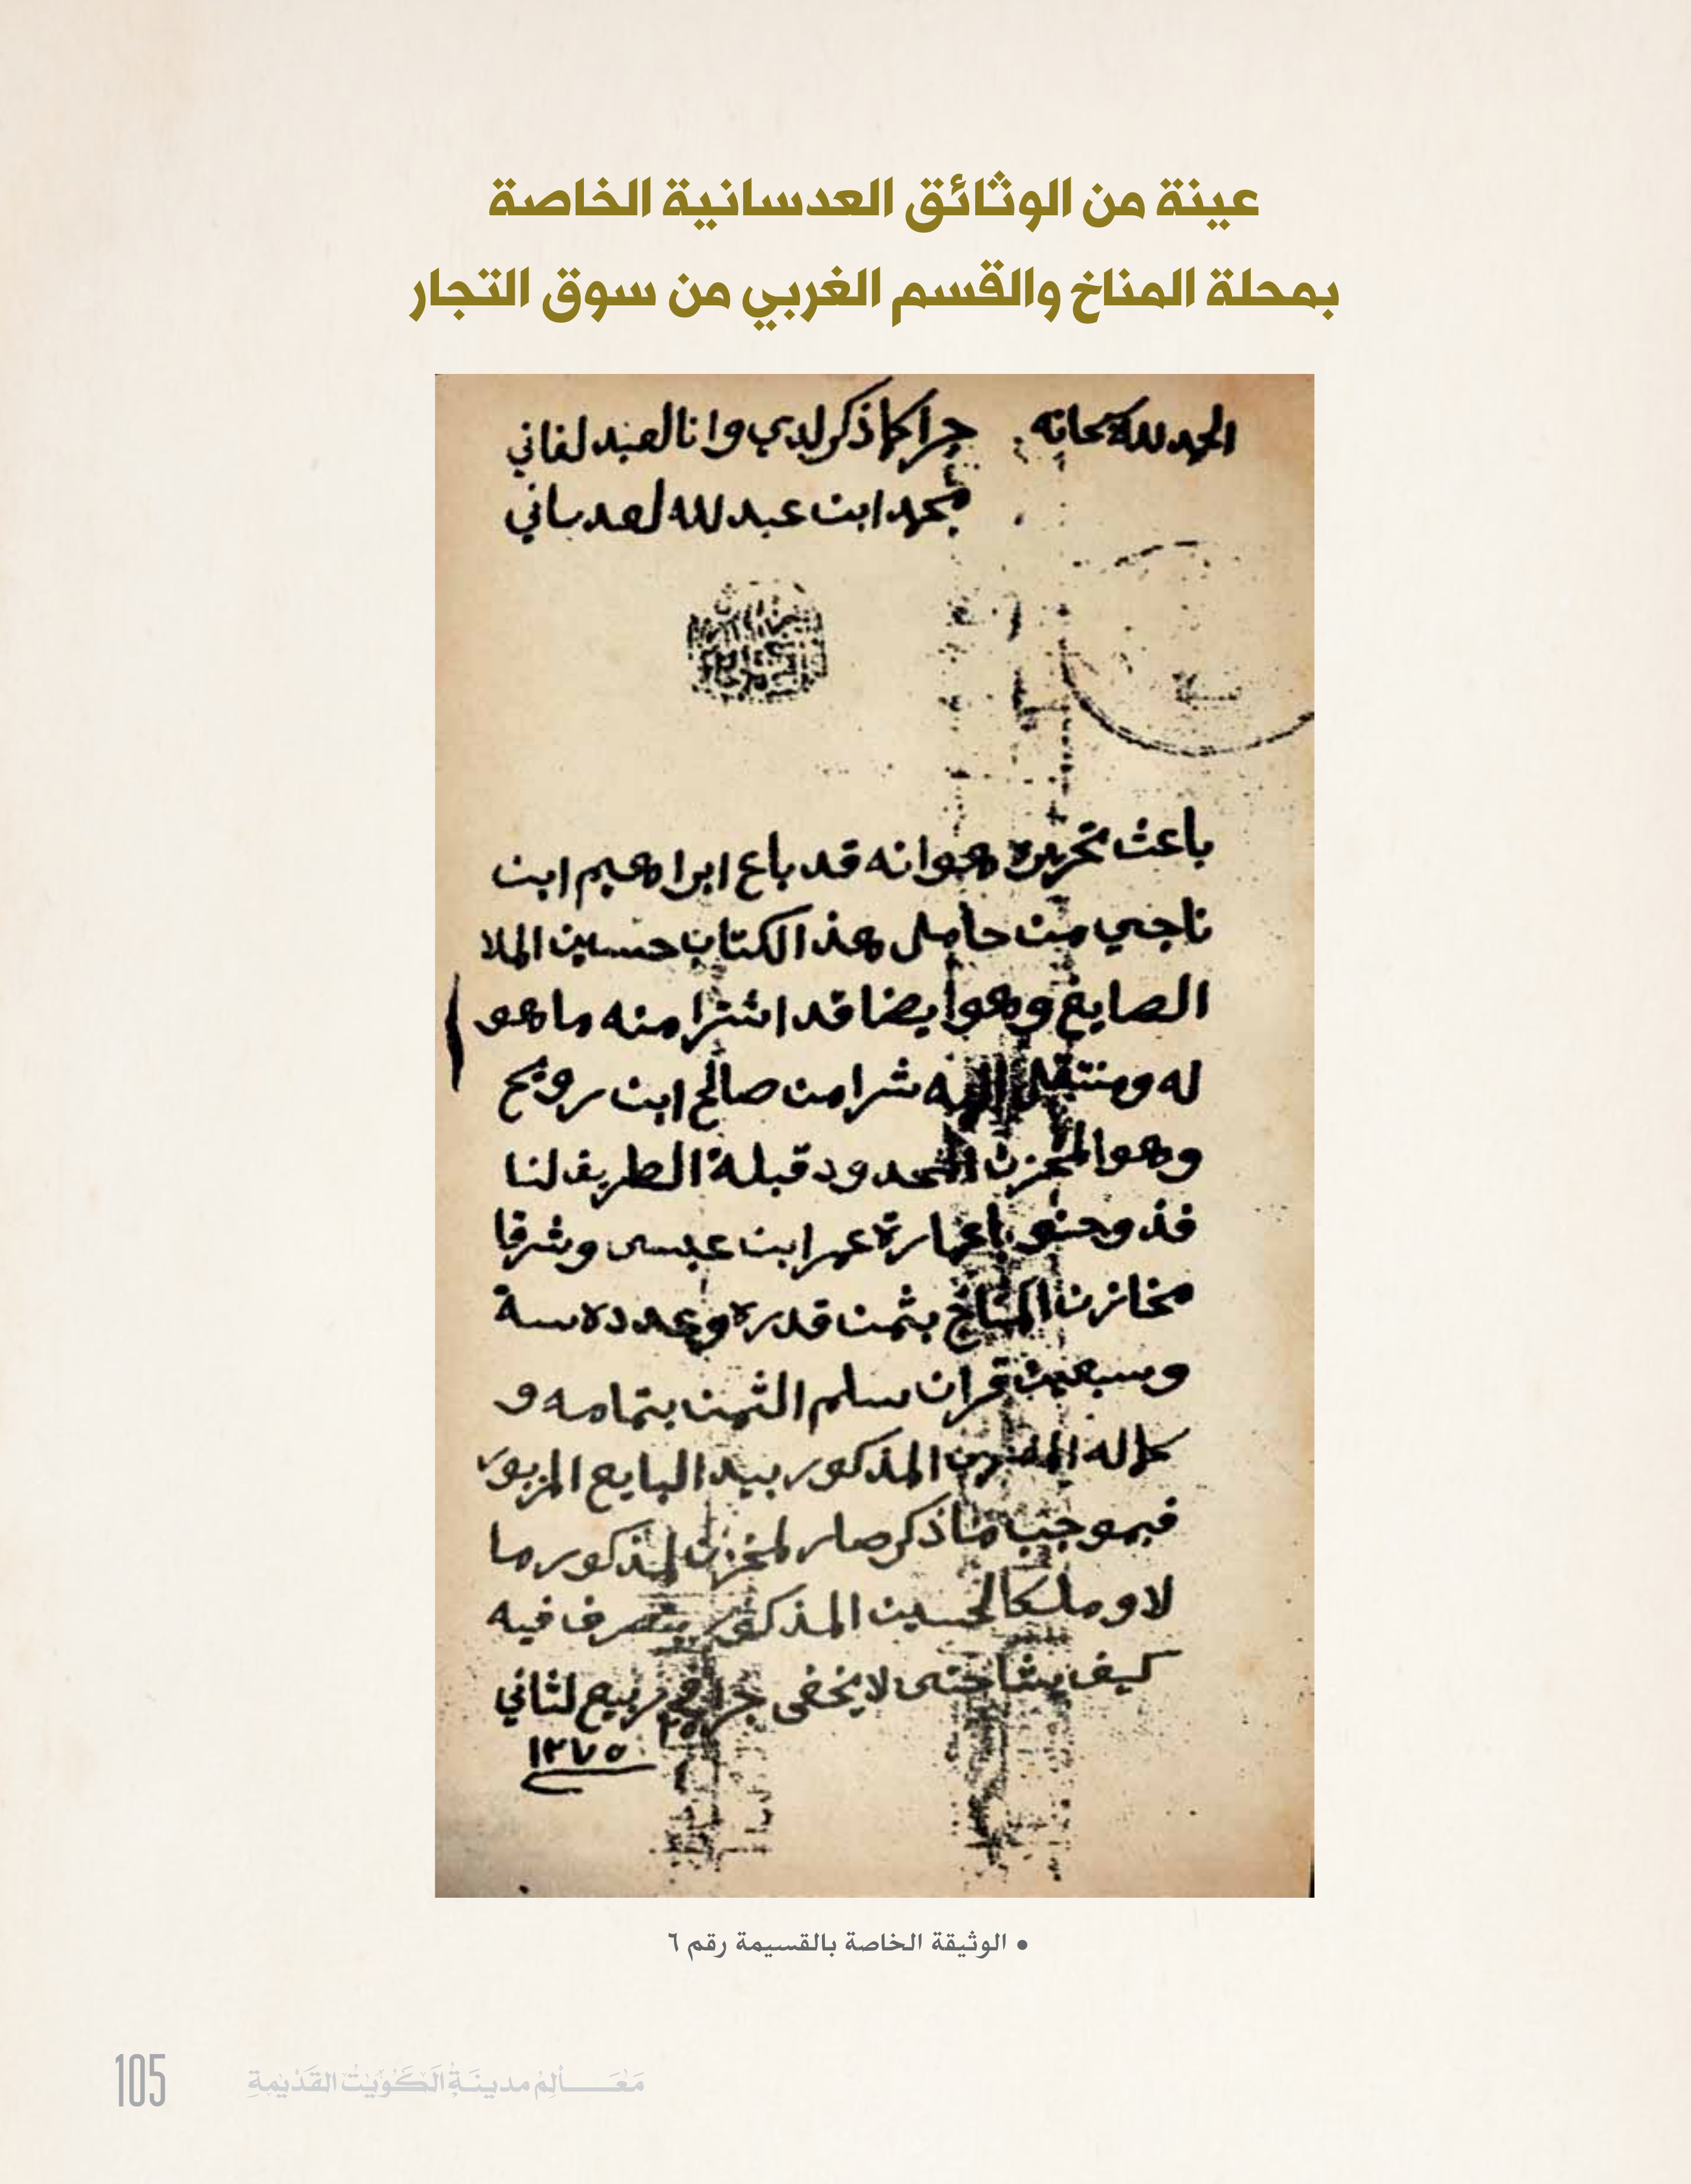 عينة من الوثائق العدسانية الخاصة
بمحلة المناخ والقسم الغربي من سوق التجار
الحمد لله سبحانه
جرا كما ذكر لدي وانا العبد لفاني
محمد ابن عبد لله لعدساني
باعث تحريره هو انه قد باع ابراهيم ابن
ناجي من حامل هذ الكتاب حسين الملا
الصايغ وهو ايضا قد اشترا منه ما هو
له ومنتقل اليه شرا من صالح ابن رويح
وهو المخزن المحدود قبلة الطريف لنا
فذ وجنوبا عمارة عمر ابن عيسى وشرقا
مخازن المناخ بثمن قدره وعدده سة
وسبعين قران سلم الثمن بتمامه و
كماله المذكور بيد البايع المزبور
فبموجب ما ذكر صار لمخزن لمذكور ما
لا و ملكا لحسين المذكور يتصرف فيه
كيف يشا حتى لا يخفى جرا في ربيع لثاني
١٢٧٥
• الوثيقة الخاصة بالقسيمة رقم ٦
105
مَعَـالِمُ مدينَـةِ الكُوَيْتُ القَدْيمَةِ